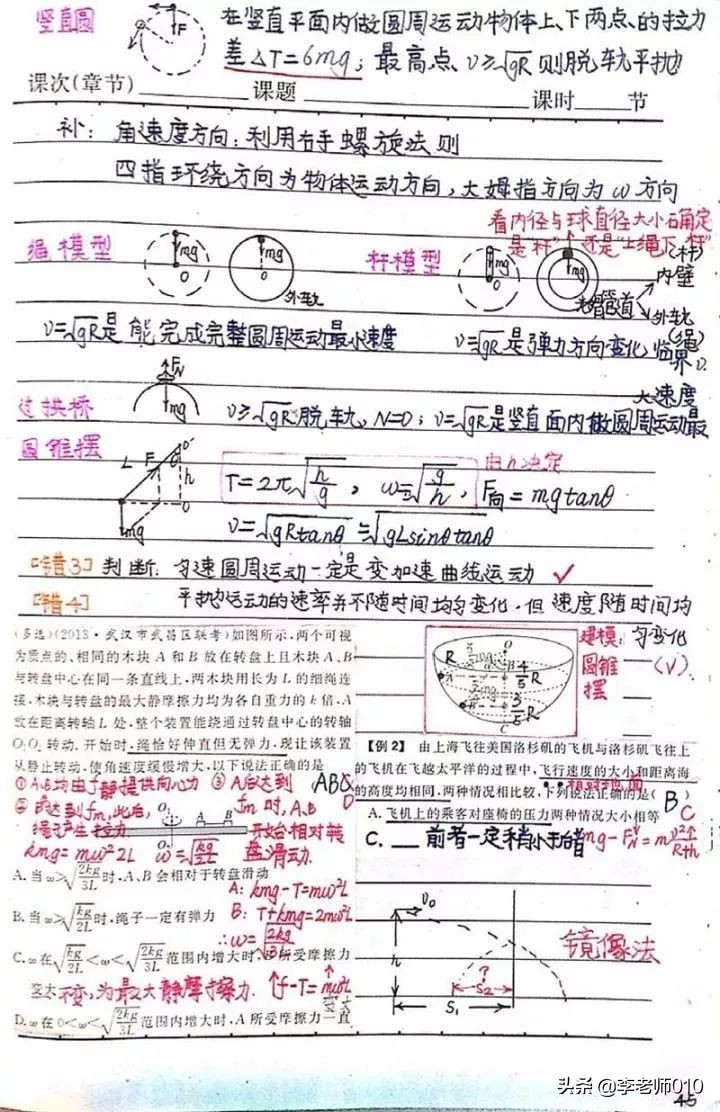 竖直圆
在竖直平面内做圆周运动物体上、下两点的拉力
差△T=6mg；最高点 v≥√gR 则脱轨平抛
课次(章节)
课题
课时
节
补：角速度方向：利用右手螺旋法则
四指环绕方向为物体运动方向，大姆指方向为ω方向
看内径与球直径大小确定
是"杆"还是"上绳下杆"
绳模型
mg
O
mg
O
外轨
杆模型
mg
O
mg
光滑管道
(杆)
内壁
外轨
(绳)
v=√gR是能完成完整圆周运动最小速度
v=√gR是弹力方向变化临界v.
过拱桥
FN
mg
v≥√gR脱轨，N=0；v=√gR是竖直面内做圆周运动最
大速度
圆锥摆
L
F
θ
O'
h
O
mg
T=2π√(h/g)，ω=√(g/h)，由h决定 F向=mgtanθ
v=√gRtanθ=√gLsinθtanθ
[错3] 判断：匀速圆周运动一定是变加速曲线运动 ✓
[错4] 平抛运动的速率并不随时间均匀变化，但速度随时间均
匀变化
(√)
(多选)(2013·武汉市武昌区联考)如图所示，两个可视
为质点的、相同的木块A和B放在转盘上且木块A、B
与转盘中心在同一条直线上，两木块用长为L的细绳连
接，木块与转盘的最大静摩擦力均为各自重力的k倍，A
放在距离转轴L处，整个装置能绕通过转盘中心的转轴
O₁O₂转动，开始时，绳恰好伸直但无弹力，现让该装置
从静止转动，使角速度缓慢增大，以下说法正确的是
ABD
①A、B均由f静提供向心力 ③A后达到
fm时，A、B
②B达到fm，此后，
绳子产生拉力
开始相对转
盘滑动.
A
B
kmg=mω²2L ω=√(kg/2L)
A.当ω>√(2kg/3L)时，A、B会相对于转盘滑动
A：kmg-T=mω²L
B.当ω>√(kg/2L)时，绳子一定有弹力
B：T+kmg=2mω²L
∴ω=√(2kg/3L)
C.ω在√(kg/2L)<ω<√(2kg/3L)范围内增大时，B所受摩擦力
变大
不变，为最大静摩擦力.
↑f-T=mω²L↑
变大
D.ω在0<ω<√(2kg/3L)范围内增大时，A所受摩擦力一直
R
O
A
B
C
4/5R
3/5R
建模：
圆锥
摆
【例2】 由上海飞往美国洛杉矶的飞机与洛杉矶飞往上
海的飞机在飞越太平洋的过程中，飞行速度的大小和距离海
面的高度均相同，两种情况相比较，下列说法正确的是( )
相对地面
B
C
A.飞机上的乘客对座椅的压力两种情况大小相等
C. 前者一定稍小于后者
mg-FN=mv²/R+h
v₀
h
?
S₂
S₁
镜像法
头条@李老师010
45